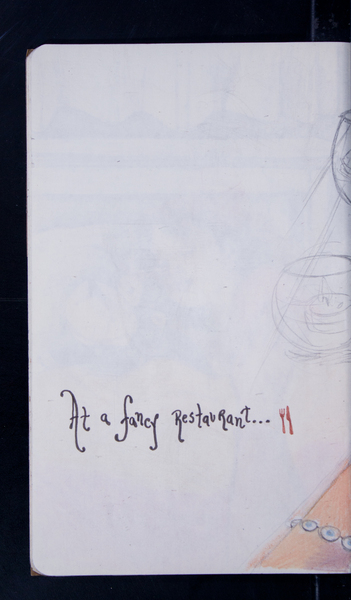 At a fancy Restaurant...